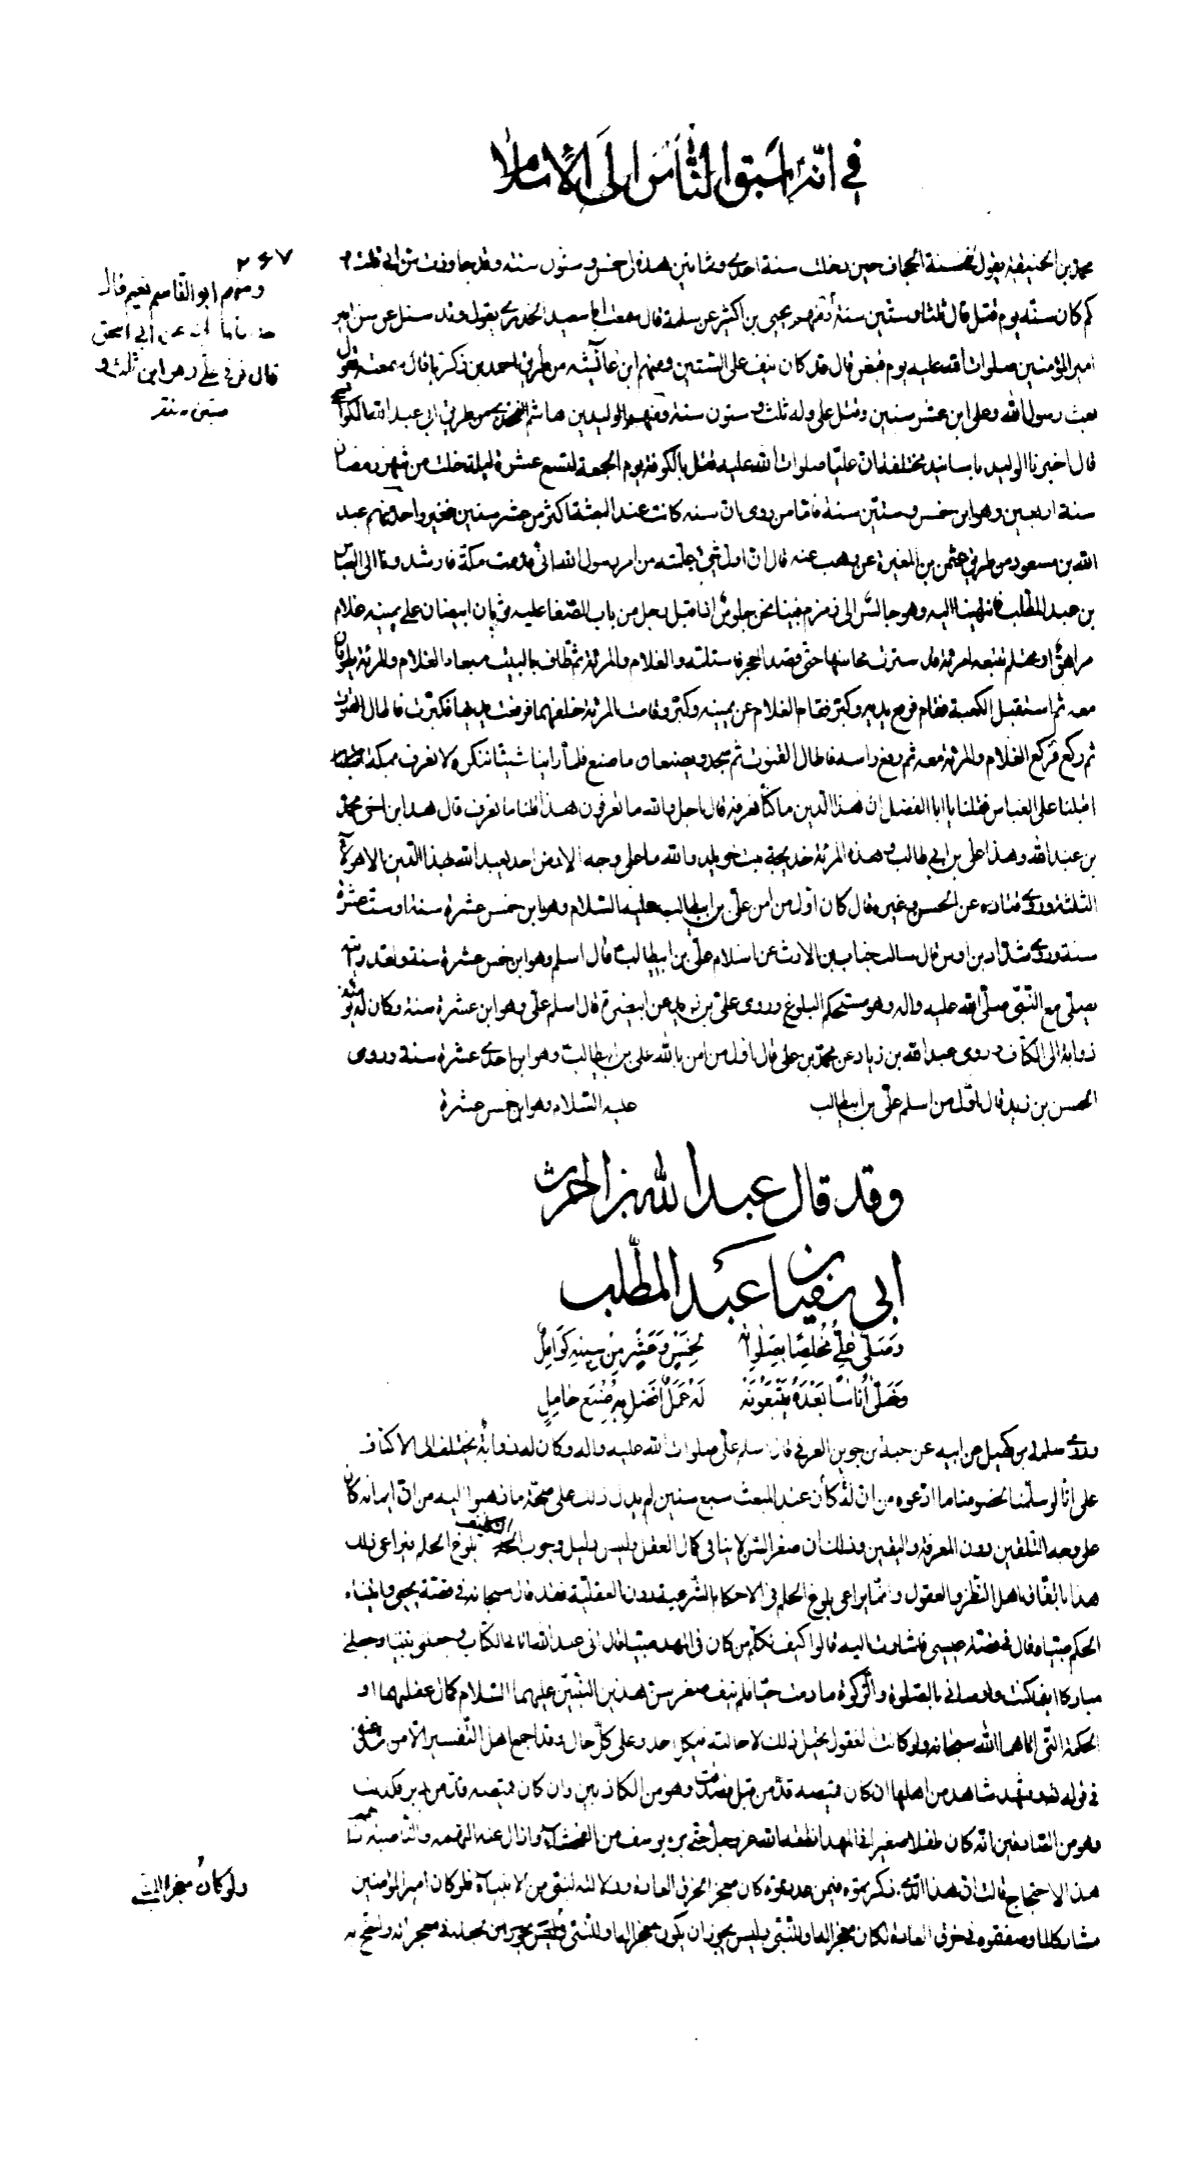 في انّه اسبق الناس الى الاسلام
محمد بن الحنيفة يقول سنة الجحاف حين دخلت سنة احدى وثمانين هذه لي خمس و ستون سنة وقد جاوزت سن ابي قلت و
كم كان سنه يوم قتل قال ثلثا وستين سنة ومنهم يحيى بن اكثير عن سلمة قال سمعت ابا سعيد الخدري يقول وقد سئل عن سن امير
امير المؤمنين صلوات الله عليه يوم قبض قال قد كان نيف على الستين ومنهم ابن عائشه من طريق احمد بن زكريا قال سمعته يقول
بعث رسول الله وعلى ابن عشر سنين وقتل على وله ثلث و ستون سنة ومنهم الوليد بن هاشم من طريق ابي عبد الله
قال اخبرنا الوليد باسانيد مختلفة ان عليّا صلوات الله عليه قتل بالكوفة يوم الجمعة لتسع عشرة ليلة خلت من شهر رمضان
سنة اربعين وهو ابن خمس وستين سنة فاما من روى ان سنه كانت عند البعثة اكثر من عشر سنين فغير واحد منهم عبد
الله بن مسعود من طريق عثمن بن المغيرة عن وهب عنه قال ان اول شيء علمته من امر رسول الله اني قدمت مكة فارشدونا الى العباس
بن عبد المطّلب فانتهينا اليه وهو جالس الى زمزم فبينا نحن جلوس اذ اقبل رجل من باب الصّفا عليه ثوبان ابيضان على يمينه غلام
مراهق او محتلم تتبعه امرئة قد سترت محاسنها حتى قصد الحجر فاستلمه والغلام والمرئة ثم طاف بالبيت سبعا والغلام والمرئة يطوفان
معه ثم استقبل الكعبة فقام فرفع يديه وكبّر فقام الغلام عن يمينه وكبّر وقامت المرئة خلفهما فرفعت يديها فكبّرت فاطال القنوت
ثم ركع فركع الغلام والمرئة معه ثم رفع راسه فاطال القنوت ثم سجد ويصنعان ما صنع فلما راينا شيئا ننكره لا نعرف بمكة
اقبلنا على العباس فقلنا يا ابا الفضل ان هذا الدين ما كنا نعرفه قال اجل والله ما تعرفون هذا قلنا ما نعرف قال هذا ابن اخي محمد
بن عبد الله وهذا على بن ابي طالب وهذه المرئة خديجة بنت خويلد والله ما على وجه الارض احد يعبد الله بهذا الدين الا هؤلاء
الثلثة وروى قتاده عن الحسن وغيره قال كان اول من امن على بن ابيطالب عليه السلام وهو ابن خمس عشرة سنة او ست عشرة
سنة وروى شداد بن اوس قال سالت خباب بن الارت عن اسلام على بن ابيطالب قال اسلم وهو ابن خمس عشرة سنة ولقد رايته
يصلّي مع النّبيّ صلّى الله عليه واله وهو مستحكم البلوغ وروى على بن زيد عن ابي نضرة قال اسلم علي وهو ابن عشرة سنة وكان له يومئذ
ذوابة الى الكتاف وروى عبد الله بن زياد عن محمد بن على قال اول من امن بالله على بن ابيطالب وهو ابن احدى عشرة سنة وروى
الحسن بن زيد قال اوّل من اسلم علىّ بن ابيطالب عليه السّلام وهو ابن خمس عشرة
وقد قال عبد الله بن الحرث
ابي سفيان بن عبد المطّلب
وَصَلَّى عَلِيٌّ مُخْلِصًا بِصَلَوتِهِ لِخَمْسٍ وَعَشْرٍ مِنْ سِنِيهِ كَوَامِلُ
وَخَلَّى أُنَاسًا بَعْدَهُ يَتْبَعُونَهُ لَهُ عَمَلٌ أَفْضَل بِهِ صُنْع عَامِلِ
وروى سلمة بن كهيل عن ابيه عن حبة بن جوين العرني قال اسلم علىّ صلوات الله عليه واله وكان له ذوابة يختلف الى الاكتاف
على انّا لو سلّمنا لخصومنا ما ادّعوه من انّ له كان عند المبعث سبع سنين لم يدل ذلك على صحّة ما ذهبوا اليه من انّ ايمانه كان
على وجه التلقين دون المعرفة واليقين وذلك ان صغر السّن لا ينافي كمال العقل وليس دليل وجوب التكليف بلوغ الحلم فيراعى ذلك
هذا باتّفاق اهل النّظر والعقول وانّما يراعى بلوغ الحلم في الاحكام الشّرعيّة دون العقليّة فقد قال سبحانه في قصّة يحيى واتيناه
الحكم صبيا وقال في قصّة عيسى فاشارت اليه قالوا كيف نكلّم من كان في المهد صبيّا قال انّى عبد الله اتاني الكتاب وجعلني نبيا وجعلني
مباركا اينما كنت واوصاني بالصّلوة والزّكوة ما دمت حيّا فلم ينف صغر سن هذين النّبيّين عليهما السّلام كمال عقلهما او
الحكمة التّي اتاهما الله سبحانه ولو كانت العقول تحيل ذلك لاحالته في كلّ احد وعلى كلّ حال وقد اجمع اهل التّفسير الّا من شذ
في قوله وشهد شاهد من اهلها ان كان قميصه قدّ من قبل فصدقت وهو من الكاذبين وان كان قميصه قدّ من دبر فكذبت
وهو من الصّادقين انّه كان طفلا صغيرا في المهد انطقه الله عزّ وجلّ حتّى برّء يوسف من الفحشاء وازال عنه التهمة والنّاصبة
هذا الاحتجاج قالت انّ هذا الّذي ذكرتموه فيمن عددتموه كان معجزا لخرق العادة ودلالة لنبيّ من الانبياء فلو كان امير المؤمنين
مشاركا لما وصفتموه في خرق العادة لكان معجزا له او للنّبي وليس يجوز ان يكون معجزا له ولو للنّبي
٢٦٧
ومنهم ابو القاسم نعيم قال
عن ابي اسحق
قال توفي علي وهو ابن ثلث و
ستين سنة
ولو كان معجزا للنبي